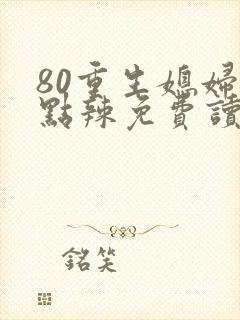 80重生媳婦
點辣免費讀
銘笑